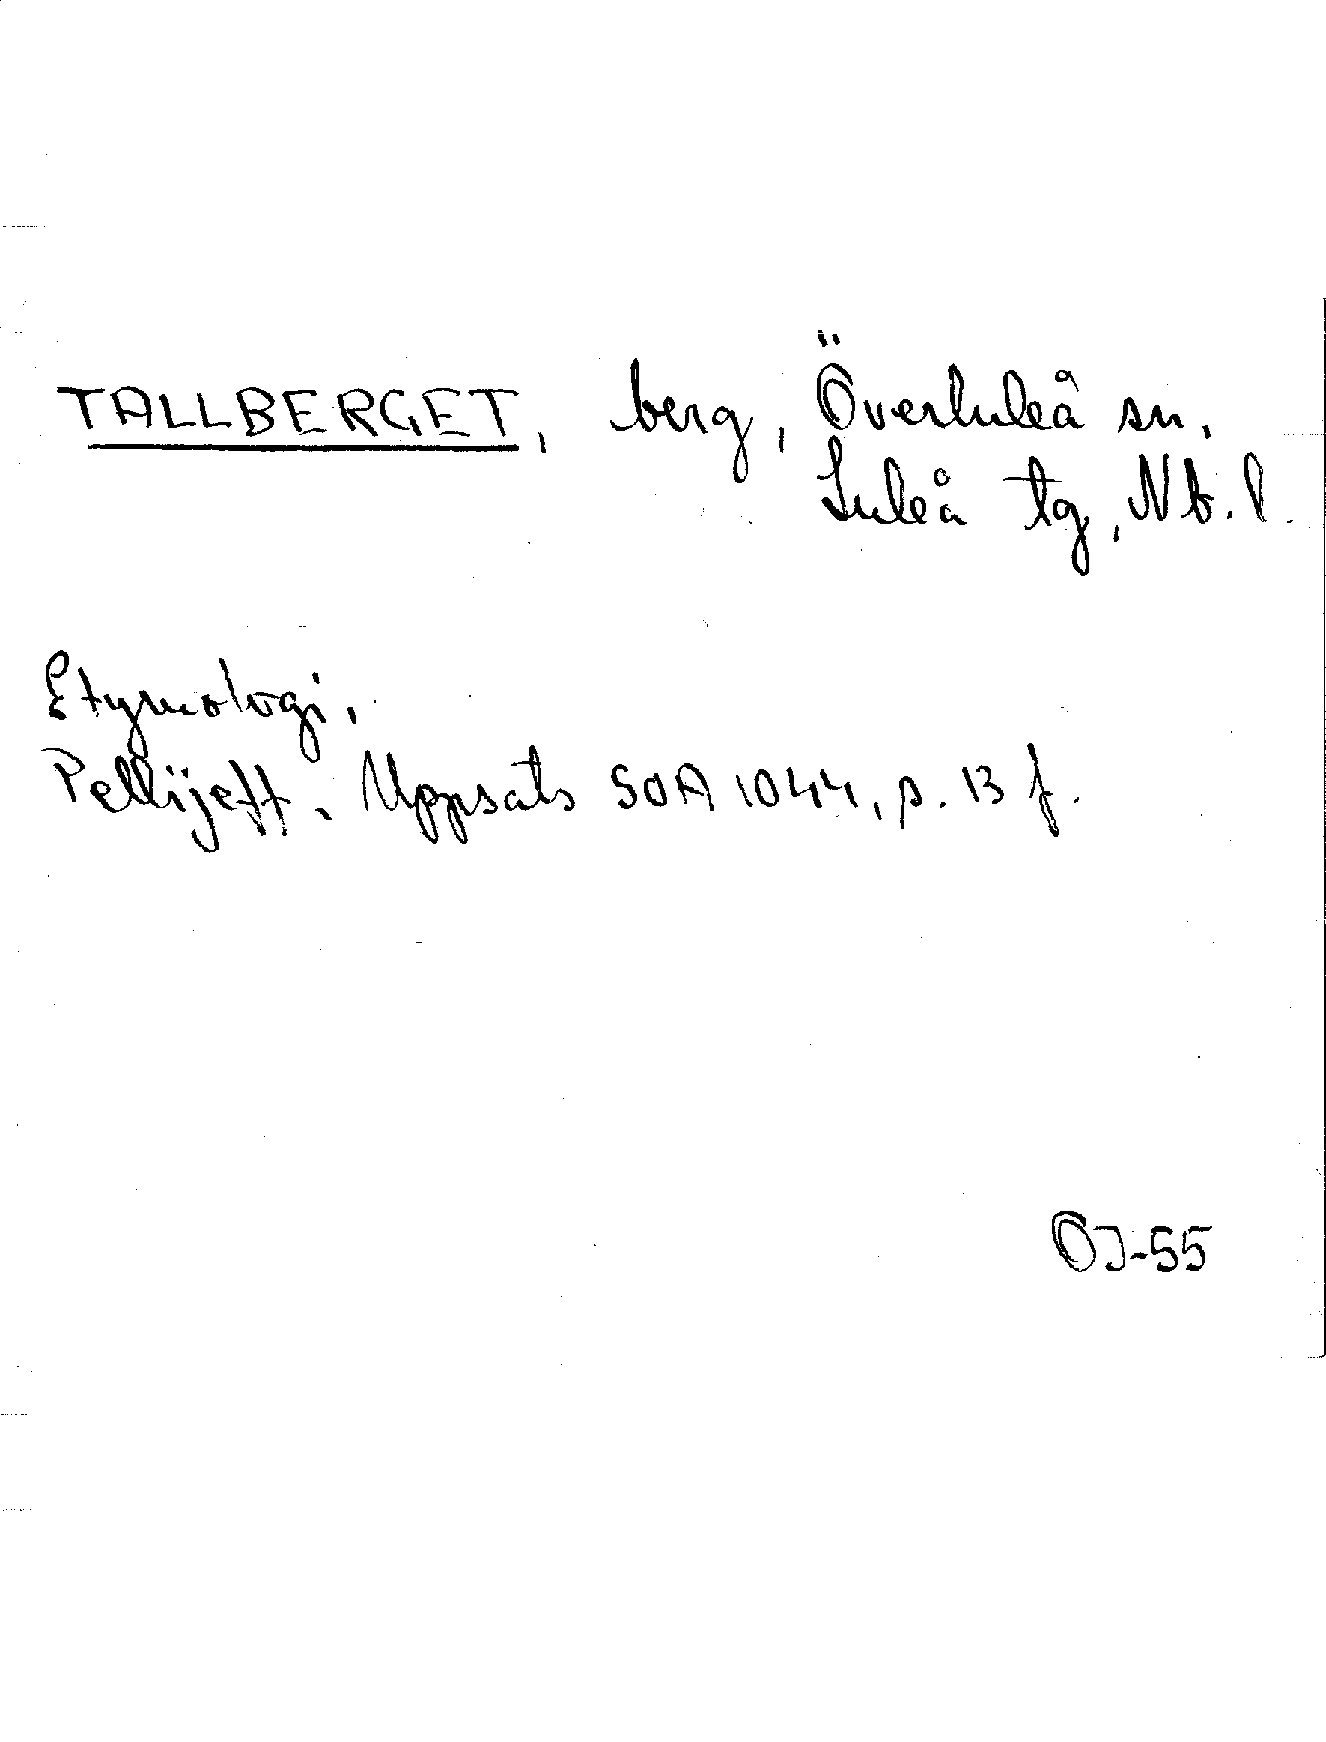 TALLBERGET, berg, Överluleå sn,
Luleå tg, Nb. l.
Etymologi,
Pellijeff, Uppsats SOA 1044, s. 13 f.
OJ-55